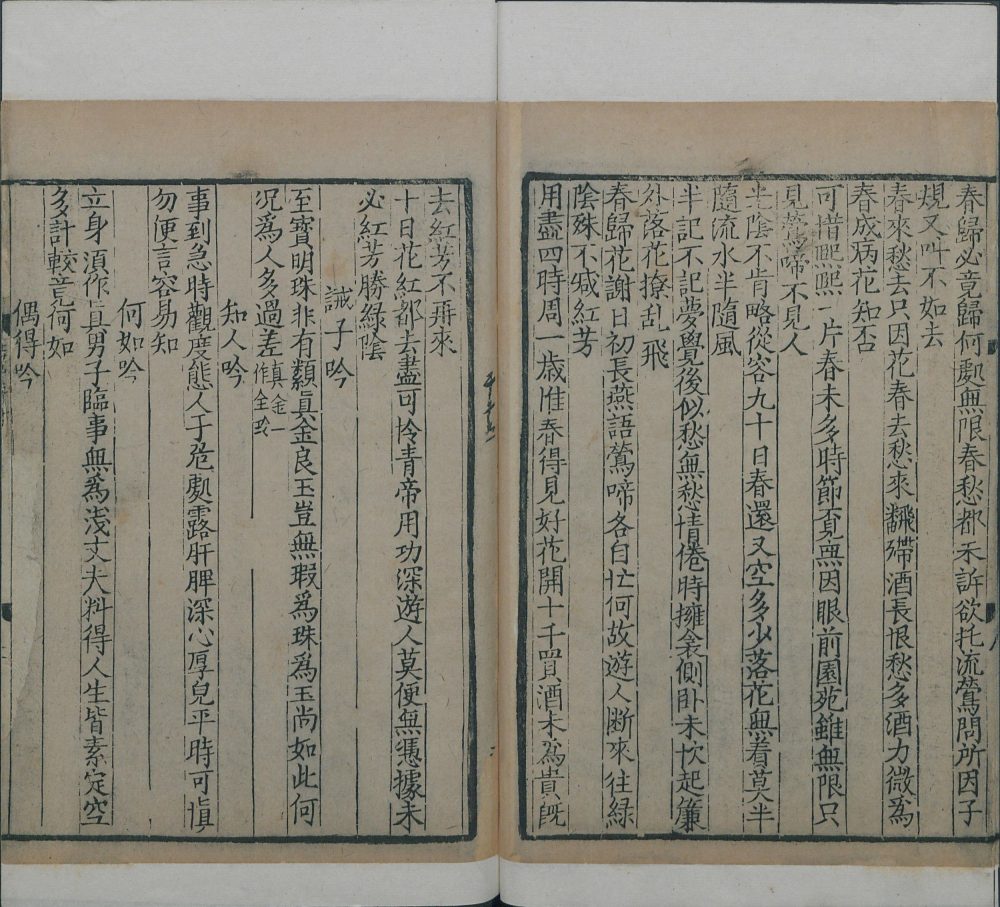 春歸必竟歸何處無限春愁都未訴欲托流鶯問所因子
規又叫不如去
春來愁去只因花春去愁來翻殢酒長恨愁多酒力微爲
春成病花知否
可惜熈熈一片春未多時節覔無因眼前園苑雖無限只
見鶯啼不見人
光陰不肯略從容九十日春還又空多少落花無着莫半
隨流水半隨風
半記不記夢覺後似愁無愁情倦時擁衾側卧未忺起簾
外落花撩乱飛
春歸花謝日初長燕語鶯啼各自忙何故遊人断來往緑
陰殊不减紅芳
用盡四時周一歳惟春得見好花開十千買酒未為貴既
去紅芳不再來
十日花紅都去盡可怜青帝用功深遊人莫便無憑據未
必紅芳勝緑陰
誡子吟
至寳明珠非有纇真金良玉豈無瑕爲珠爲玉尚如此何
况爲人多過差真金作全球
知人吟
事到急時觀度態人于危處露肝脾深心厚皃平時可慎
勿便言容易知
何如吟
立身湏作真男子臨事無爲浅丈夫料得人生皆素定空
多計較竟何如
偶得吟